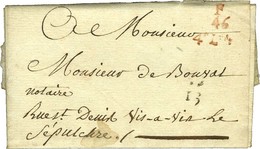 A Monsieur
P
46
4eL4
Monsieur de Bouvat
notaire
13
Rue st. Denis Vis-a-Vis Le
Sepulchre